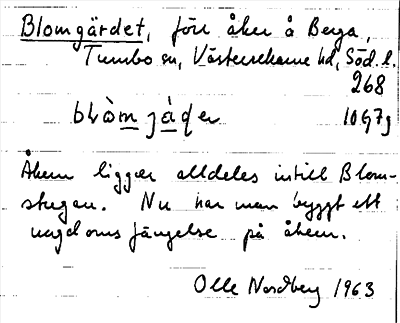 Blomgärdet, förr åker å Berga,
Tumbo sn, Västerrekarne hd, Söd. l.
268
blòm jà̤ḍeṇ 10G7g
Åkern ligger alldeles intill Blom-
stugan. Nu har man byggt ett
ungdomsfängelse på åkern.
Olle Nordberg 1963